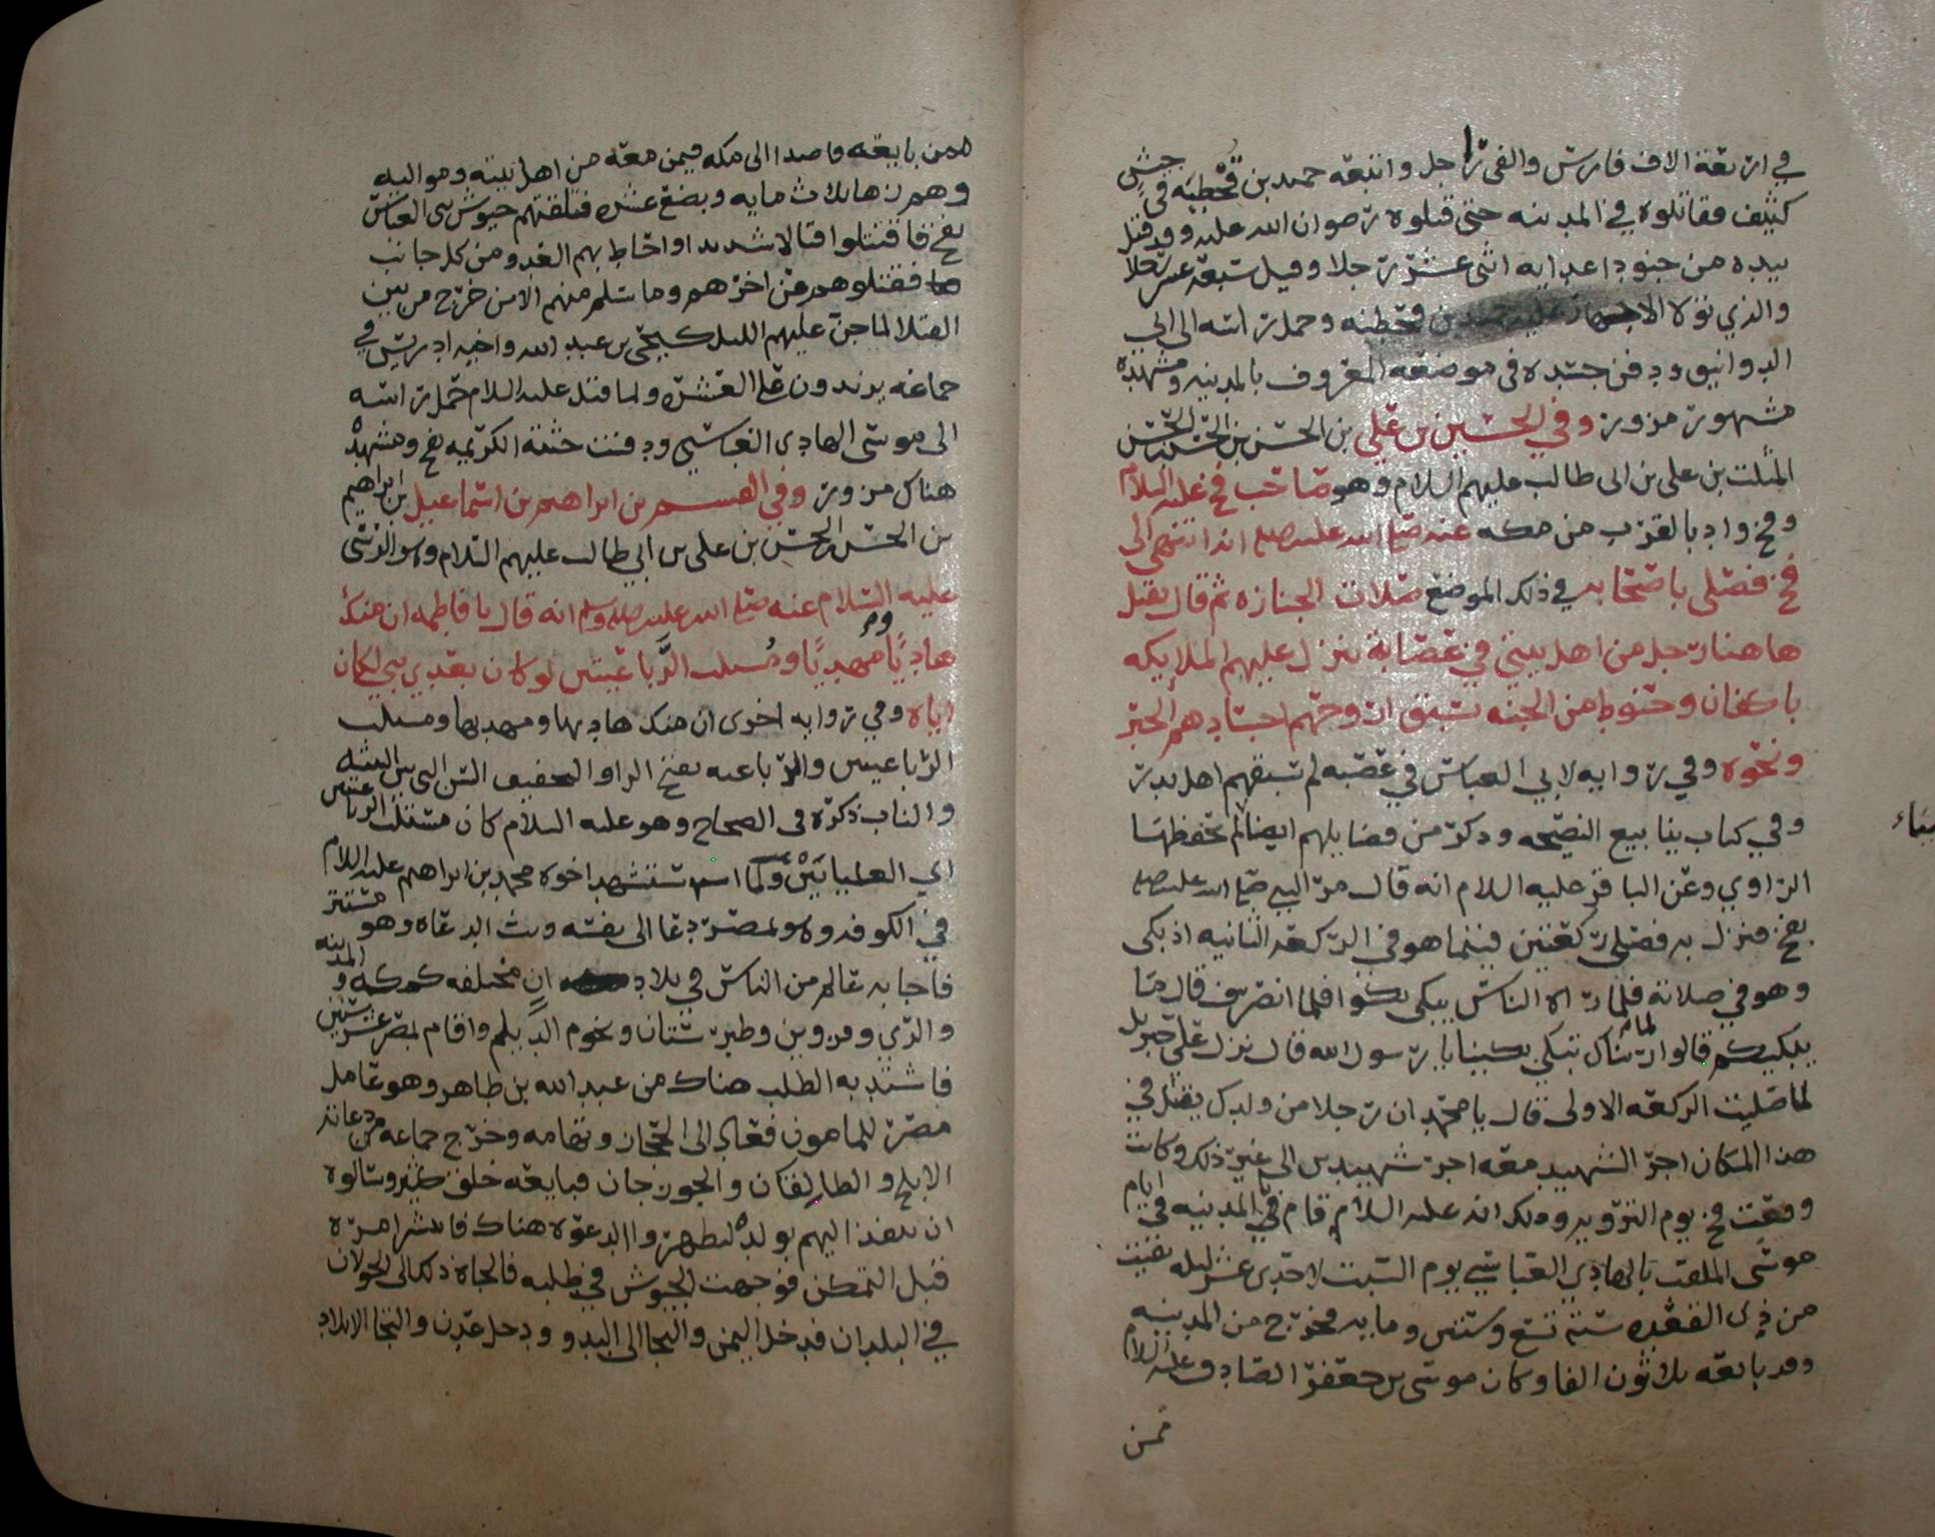 في اربعة الاف فارس والفي راجل واتبعه حميد بن قحطبه في جيش
كثيف فقاتلوه في المدينه حتى قتلوه رضوان الله عليه وقد قتل
بيده من جنود اعدايه اثنى عشر رجلا وقيل سبعة عشر رجلا
والذي تولا الاجهاز عليه حميد بن قحطبه وحمل راسه الى ابي
الدوانيق ودفن جسده في موضعه المعروف بالمدينه ومشهده
مشهور مزور وفي الحسين بن علي بن الحسن بن الحسن بن الحسن
المثلث بن علي بن ابى طالب عليهم السلام وهو صاحب فخ عليه السلام
وفخ واد بالقرب من مكه عنه صلى الله عليه وسلم انه انتهى الى
فخ فصلى باصحابه في ذلك الموضع صلاة الجنازه ثم قال يقتل
هاهنا رجل من اهل بيتي في عصابة تنزل عليهم الملايكه
باكفان وحنوط من الجنه تسبق ارواحهم اجسادهم الخبر
ونحوه وفي روايه لابي العباس في عصبه لم تسبقهم اهل بدر
وفي كتاب ينابيع النصيحه وذكر من فضايلهم ايضا لم تحفظها
الراوي وعن الباقر عليه السلام انه قال مر النبي صلى الله عليه وسلم
بفخ فنزل به فصلى ركعتين فبينما هو في الركعه الثانيه اذ بكى
وهو في صلاته فلما راه الناس يبكي بكوا فلما انصرف قال ما
يبكيكم قالوا لما رايناك تبكي بكينا يا رسول الله قال نزل علي جبريل
لما صليت الركعه الاولى قال يا محمد ان رجلا من ولدك يقتل في
هذا المكان اجر الشهيد معه اجر شهيدين الى غير ذلك وكانت
وقعت فخ يوم الترويه وذلك انه عليه السلام قام في المدينه في ايام
موسى الملقب بالهادي العباسي يوم السبت لاحدى عشر ليله بقيت
من ذي القعده سنه تسع وستين ومايه فخرج من المدينه
وقد بايعه ثلاثون الفا وكان موسى بن جعفر الصادق عليه السلام
ممن
ممن بايعه قاصدا الى مكه فيمن معه من اهل بيته ومواليه
وهم زها ثلاث مايه وبضع عشره فتلقتهم جيوش بني العباس
بفخ فاقتتلوا قتالا شديدا واحاط بهم العدو من كل جانب
فقتلوهم عن اخرهم وما سلم منهم الا من خرج من بين
القتلا لما جن عليهم الليل كيحيى بن عبد الله واخيه ادريس في
جماعه يزيدون على العشره ولما قتل عليه السلام حمل راسه
الى موسى الهادي العباسي ودفنت جثته الكريمه بفخ ومشهده
هناك مزور وفي القسم بن ابراهيم بن اسماعيل بن ابراهيم
بن الحسن بن الحسن بن علي بن ابي طالب عليهم السلام وهو الرسي
عليه السلام عنه صلى الله عليه وسلم انه قال يا فاطمه ان منك
هاديا ومهديا ومستلب الرباعيتين لو كان بعدي نبي لكان
اياه وفي روايه اخرى ان منك هاديها ومهديها ومستلب
الرباعيتين والرباعيه بفتح الراو التخفيف السن التي بين الثنيه
والناب ذكره في الصحاح وهو عليه السلام كان مستلب الرباعيتين
اي العلياتين ولما استشهد اخوه محمد بن ابراهيم عليه السلام
في الكوفه وهو بمصر دعا الى نفسه وبث الدعاه وهو مستتر
فاجابه عالم من الناس في بلادان مختلفه كمكه والمدينه
والري وقزوين وطبرستان وتخوم الديلم واقام بمصر عشر سنين
فاشتد به الطلب هناك من عبد الله بن طاهر وهو عامل
مصر للمامون فعاد الى الحجاز وتهامه وخرج جماعه من دعاته
الى بلخ والطالقان والجوزجان فبايعه خلق كثير وسالوه
ان ينفذ اليهم بولده ليظهروا الدعوه هناك فانتشر امره
قبل التمكن فوجهت الجيوش في طلبه فالجاه ذلك الى الجولان
في البلدان فدخل اليمن والتجا الى البدو ودخل عدن والتجا الا بلاد